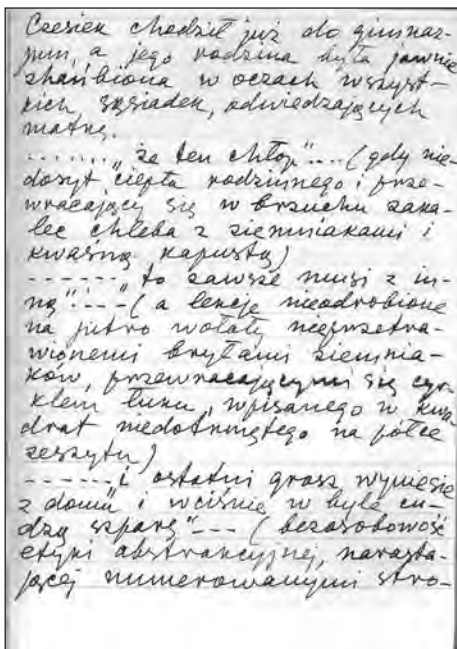 Czesiek chodził już do gimnaz-
jum, a jego rodzina była jawnie
zhańbiona w oczach wszyst-
kich sąsiadek, odwiedzających
matkę.
......., „że ten chłop".... (gdy nie-
dosyt ciepła rodzinnego i prze-
wracający się w brzuchu zaka-
lec chleba z ziemniakami i
kwaśną kapustą)
------ „to zawsze musi z in-
ną".--- (a lekcje nieodrobione
na jutro wołały nieprzetra-
wionemi bryłami ziemnia-
ków, przewracającymi się cyr-
klem łuku, wpisanego w kwa-
drat niedotkniętego na półce
zeszytu)
------ „i ostatni grosz wyniesie
z domu" i wciśnie w byle cu-
dzą szparę"--- (bezosobowość
etyki abstrakcyjnej, narasta-
jącej numerowanymi stro-